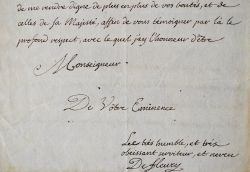 de me rendre digne de plus en plus de vos boutés, et de
celles de sa Majesté, affin de vous témoigner par là le
profond respect, avec le quel j'ay l'honneur d'être
Monseigneur
De Vôtre Eminence
Le très humble, et très
obeissant serviteur, et neveu
De fleury